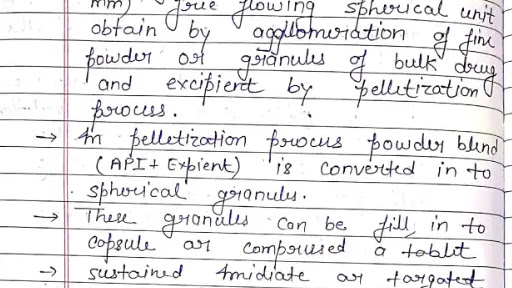 mm) free flowing spherical unit
obtain by agglomuration of fine
powder or granules of bulk drug
and excipient by pelletization
process.
→ In pelletization process powder blend
(API + Expient) is converted in to
spherical granules.
→ These granules can be fill in to
capsule or comprused a tablet
→ sustained imidiate or targated